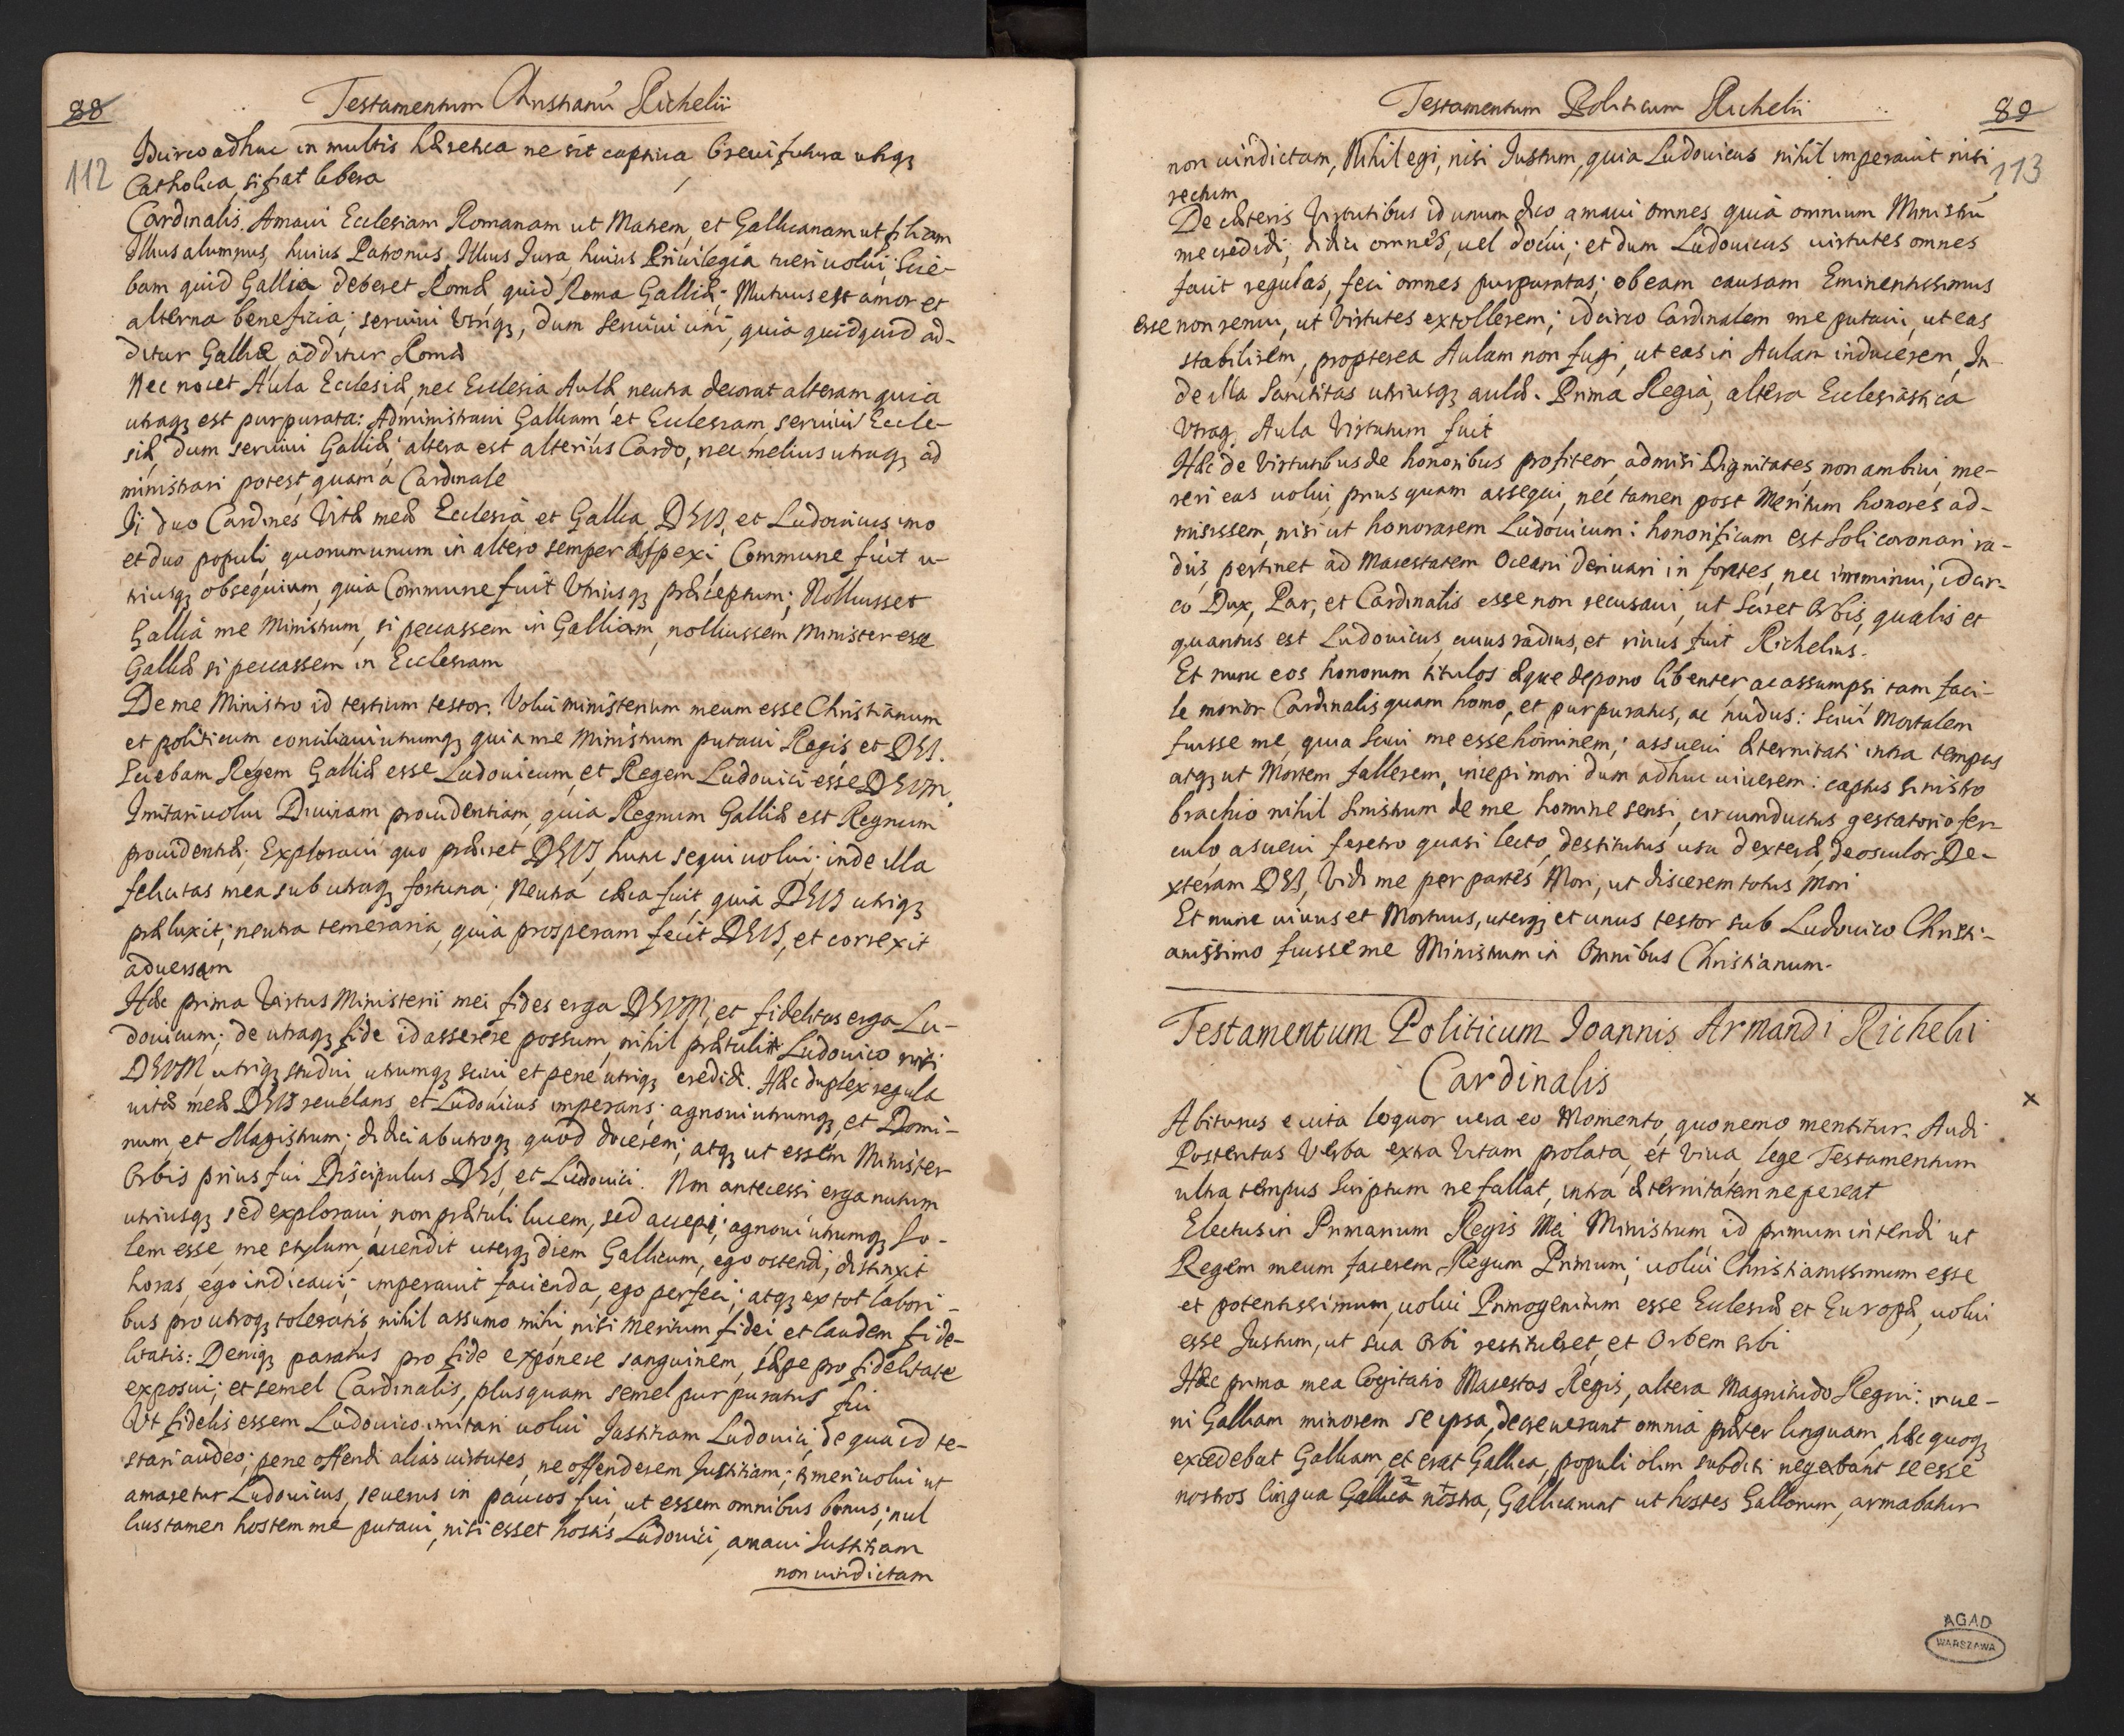 88
Testamentum Christianũ Richelii
112
Idcirco adhuc in multis hæretica ne sit captiva brevi futura utrq3
Catholica, si fiat libera
Cardinalis. Amavi Ecclesiam Romanam ut Matrem, et Gallicanam ut filiam
Illius alumnus, huius Patronus, Illius Jura, huius Privilegia tueri volui; Scie-
bam quid Gallia deberet Romæ, quid Roma Galliæ; Mutuus est amor et
alterna beneficia; servivi Utriq3, dum servivi uni, quia quidquid ad-
ditur Galliæ additur Romæ
Nec nocet Aula Ecclesiæ, nec Ecclesia Aulæ, neutra decorat alteram quia
utraq3 est purpurata: Administravi Galliam et Ecclesiam, servivi Eccle-
siæ, dum servivi Galliæ; altera est alterius Cardo, nec melius utraq3 ad
ministrari potest, quam à Cardinale
Ii duo Cardines Vitæ meæ Ecclesia et Gallia, DEUS, et Ludovicus, imo
et duo populi, quorum unum in altero semper aspexi, Commune fuit u-
triusq3 obsequium, quia Commune fuit Utriusq3 præceptum; Nolluisset
Gallia me Ministrum, si peccassem in Galliam, nolluissem Minister esse
Galliæ si peccassem in Ecclesiam
De me Ministro id tertium testor. Volui ministerium meum esse Christianum
et politicum conciliavi utrumq3 quia me Ministrum putavi Regis et DEI.
Sciebam Regem Galliæ esse Ludovicum, et Regem Ludovici esse DEUM.
Imitari volui Divinam providentiam, quia Regnum Galliæ est Regnum
providentiæ; Exploravi quo præiret DEUS, hunc sequi volui; inde illa
felicitas mea sub utraq3 fortuna; Neutra cæca fuit, quia DEUS utriq3
præluxit; neutra temeraria, quia prosperam fecit DEUS, et correxit
adversam
Hæc prima Virtus Ministerii mei fides erga DEUM, et fidelitas erga Lu-
dovicum; de utraq3 fide id asserere possum, nihil prætuli Ludovico nisi
DEUM, utriq3 studui, utrumq3 scivi et pene utriq3 credidi. Hæc duplex regula
vitæ meæ DEUS revelans, et Ludovicus imperans; agnovi utrumq3, et Domi-
num, et Magistrum; didici ab utroq3 quod docerem; atq3 ut essem Minister
Orbis prius fui Discipulus DEI, et Ludovici. Non antecessi erga nutum
utriusq3 sed exploravi, non prætuli lucem, sed accepi; agnovi utrumq3 So-
lem esse, me stylum, accendit uterq3 diem Gallicum, ego ostendi; distinxit
horas, ego indicavi; imperavit facienda, ego perfeci; atq3 ex tot labori-
bus pro utroq3 toleratis, nihil assumo mihi, nisi Meritum fidei, et laudem fide-
litatis: Deniq3 paratus pro fide exponere sanguinem, sæpe pro fidelitate
exposui; et semel Cardinalis, plus quam semel purpuratus fui
Ut fidelis essem Ludovico imitari volui Justitiam Ludovici, de qua id te-
stari audeo; pene offendi alias virtutes, ne offenderem Justitiam; timeri volui ut
amaretur Ludovicus, severus in paucos fui, ut essem omnibus bonus; nul
lius tamen hostem me putavi, nisi esset hostis Ludovici, amavi Justitiam
non vindictam
Testamentum Politicum Richelii
89
113
non vindictam, Nihil egi, nisi Justum, quia Ludovicus nihil imperavit nisi
rectum
De cæteris Virtutibus id unum dico amavi omnes quia omnium Ministrũ
me credidi; didici omnes, vel docui; et dum Ludovicus virtutes omnes
facit regulas, feci omnes purpuratas; ob eam causam Eminentissimus
esse non renui, ut Virtutes extollerem; idcirco Cardinalem me putavi, ut eas
stabilirem, propterea Aulam non fugi, ut eas in Aulam inducerem, In-
de illa Sanctitas utriusq3 aulæ. Prima Regia, altera Ecclesiastica
Utraq3 Aula Virtutum fuit
Hæc de Virtutibus de honoribus profiteor, admisi Dignitates, non ambivi, me-
reri eas volui, prius quam assequi, nec tamen post Meritum honores ad-
misissem, nisi ut honorarem Ludovicum: honorificum est Soli coronari ra-
diis, pertinet ad Maiestatem Oceani derivari in fontes, nec imminui; idcir-
co Dux, Par, et Cardinalis esse non recusavi, ut sciret Orbis, qualis et
quantus est Ludovicus, cuius radius, et rivus fuit Richelius.
Et nunc eos honorum titulos æque depono libenter, ac assumpsi tam faci-
le morior Cardinalis quam homo, et purpuratus, ac nudus: Scivi Mortalem
fuisse me, quia scivi me esse hominem; assuevi æternitati intra tempus
atq3 ut Mortem fallerem, incepi mori dum adhuc viverem: captus sinistro
brachio nihil sinistrum de me homine sensi, circumductus gestatorio fer-
culo, asuevi feretro quasi lecto, destitutus usu dexteræ, deosculor De-
xteram DEI, Vidi me per partes Mori, ut discerem totus Mori
Et nunc vivus et Mortuus, uterq3 et unus testor sub Ludovico Christi-
anissimo fuisse me Ministrum in Omnibus Christianum.
Testamentum Politicum Ioannis Armandi Richelii
Cardinalis
x
Abiturus e vita loquor vera eo Momento, quo nemo mentitur. Audi
Posteritas Verba extra Vitam prolata, et Viva, lege Testamentum
ultra tempus Scriptum ne fallat, intra æternitatem ne pereat
Electus in Primarium Regis Mei Ministrum id primum intendi ut
Regem meum facerem Regum Primum; volui Christianissimum esse
et potentissimum, volui Primogenitum esse Ecclesiæ et Europæ, volui
esse Justum, ut sua Orbi restitueret, et Orbem sibi
Hæc prima mea Cogitatio Maiestas Regis, altera Magnitudo Regni: inve-
ni Galliam minorem se ipsa, decreverant omnia præter linguam, hæc quoq3
excedebat Galliam, et erat Gallica, populi olim subditi negabant se esse
nostros lingua Gallica nostra, Gallicarunt ut hostes Gallorum, armabatur
AGAD
WARSZAWA